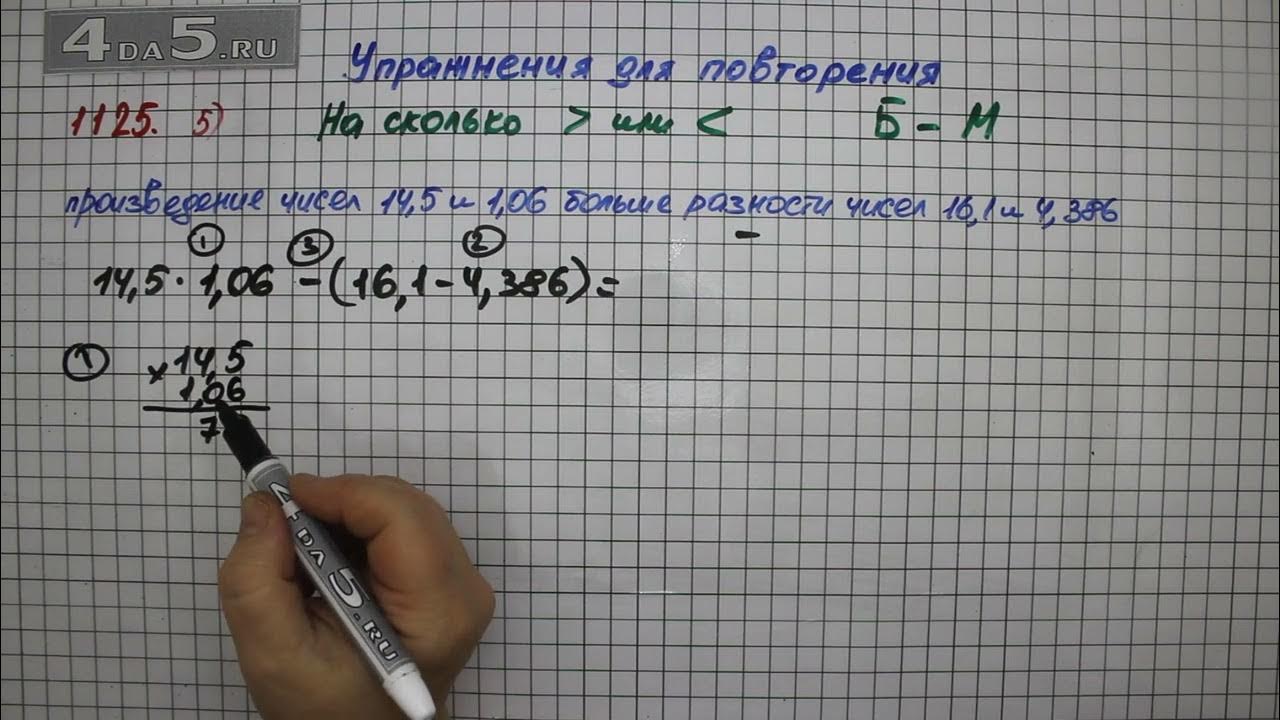 4DA5.RU
Упражнения для повторения
1125. 5) На сколько > или < Б - М
произведение чисел 14,5 и 1,06 больше разности чисел 16,1 и 4,386
① ③ ②
14,5 · 1,06 - (16,1 - 4,386) =
① × 14,5
1,06
7
4DA5.RU